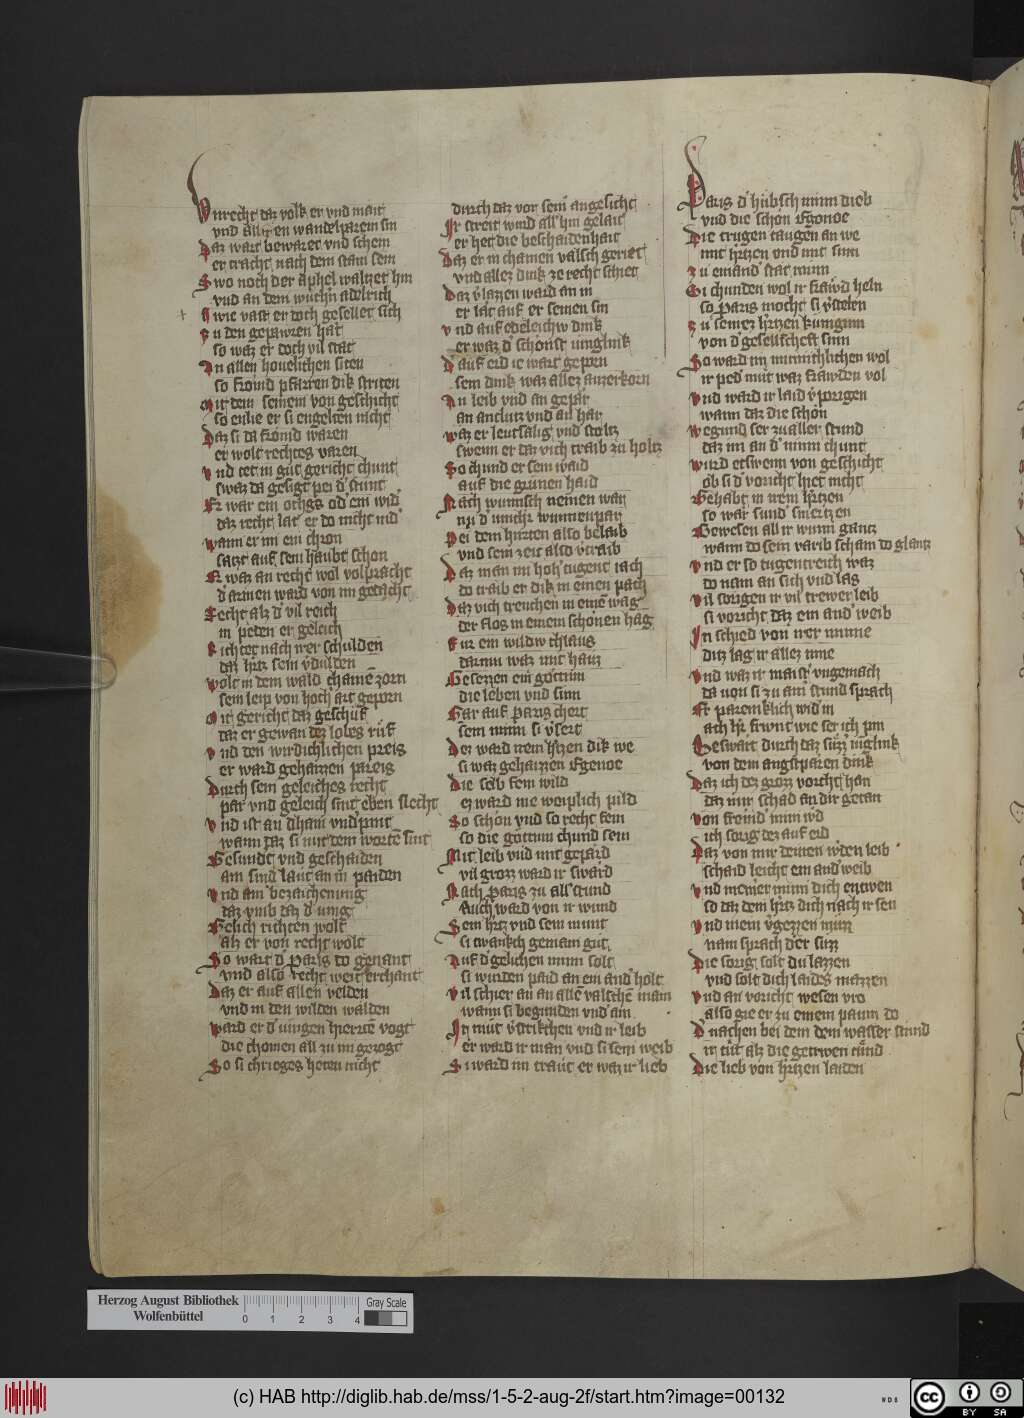 Vnrecht daz volk er vnd mait
vnd all iren wandelparem sin
Daz wart bewaret vnd schein
er tracht nach dem stam sein
Swo noch der aphel waltzet hin
vnd an dem adelrich
Swie vast er doch gesellet sich
Zu den gepawren hat
so waz er doch vil stat
An allen houelichen siten
so froind pfarren dik striten
Mit dem seinem von geschicht
so enlie er si engelten nicht
Daz si da froind waren
er wolt rechtes varen
Vnd tet in gut gericht chunt
swaz da gesigt pei d stunt
Er war ein ochgs od ein wid
daz recht lat er do nicht nid
Wann er im ein chron
satzt auf sein haubt schon
Er waz an recht wol volpracht
d armen ward von im gedacht
Recht alz d vil reich
in peden er geleich
Richtet nach irer schulden
daz hrtz sein vdulden
Wolt in dem wald chainē zorn
sein leip von hoch art geporn
Mit gericht daz geschuf
daz er gewan dez lobes ruf
Vnd den wirdichlichen preis
er ward gehaizzen pareis
Durch sein geleiches recht
par vnd geleich sint eben slecht
Vnd ist an dham vnd pint
wann daz si mit dem wortē sint
Gesundt vnd geschaiden
am sind laut an in paiden
Vnd am bezaichenung
daz vmb daz d iung
Gelich richten wolt
alz er von recht wolt
So wart d Paris do genant
vnd also recht weit erchant
Daz er auf allen velden
vnd in den wilden walden
Ward er d iungen hierttē vogt
die chomen all zu im gezogt
So si chrieges heten nicht
durch daz vor sein angesicht
Ir streit wurd all hin gelait
er het die beschaidenhait
Daz er in chainen valsch geriet
vnd allez dink ze recht schiet
Daz vlazzen ward an in
er lat auf er seinen sin
Vnd auf edeleichw dink
er waz d schonst iunglink
D auf erd ie wart gepen
sein dink waz allez auzerkorn
An leib vnd an gepar
an anclutz vnd an har
Waz er leutsalig vnd stoltz
swenn er daz vich traib zu holtz
So chund er sein waid
auf die grunen haid
Nach wunsch nemen war
nu d wunnenpar
Pei dem hirten also belaib
vnd sein zeit also vtraib
Daz man im hoh tugent iach
do traib er dik in einen pach
Daz vich trenchen in einē wag
der flos in einem schonen hag
Fur ein wildiw chlaus
darinn waz mit hauz
Gesezzen ein gottinn
die leben vnd sinn
Gar auf Paris chert
sein minn si vsert
Der ward irem hrzen dik we
si waz gehaizzen Egenoe
Die selb fein wild
ez ward nie weiplich pild
So schon vnd so recht fein
so die gottinn chund sein
Mit leib vnd mit gepard
vil grozz ward ir sward
Nach Paris zu all stund
Auch ward von ir wund
Sein hrtz vnd sein munt
si twankch gemain gut
Auf d gelichen minn solt
si wurden paid an ein and holt
Vil schier an an allē valschē main
wann si begunden vnd ain
In mut vstrikchen vnd ir leib
er ward ir man vnd si sein weib
Si ward im traut er waz ir lieb
Paris d hubsch minn dieb
vnd die schon Egonoe
Die trugen taugen an we
mit hrtzen vnd mit sinn
Zu einand stat minn
Si chunden wol ir frawd heln
so Paris mocht si vsteln
Zu seinez hrtzen kunginn
von d geselleschaft sinn
So ward im minnichlichen wol
ir ped mut waz frawden vol
Vnd ward ir laid vporigen
wann daz die schon
Wegund ser zu aller stund
daz im an d minn chunt
Wurd etswenn von geschicht
ob si d voricht hiet nicht
Gehabt in irem hrtzen
so war sund smertzen
Gewesen all ir wunn gantz
wann do sein varib scham do glantz
Vnd er so tugentreich waz
do nam an sich vnd las
Vil sorigen ir vil trewer leib
si voricht daz ein and weib
In schied von irer minne
ditz lag ir allez inne
Vnd waz ir maist vngemach
da uon si zu aim stund sprach
Er paremklich wid in
ach hr frwnt wie ser ich pin
Beswart durch daz suzz iuglink
von dem angstparen dink
Daz ich dez grozz vorcht han
daz mir schad an dir getan
Von froind minn wd
ich sorig dez auf erd
Daz von mir deinen wden leib
schaid leicht ein and weib
Vnd meiner minn dich entwen
so daz dem hrtz dich nach ir sen
Vnd mein vgezzen muzz
nam sprach der suzz
Die sorig solt du lazzen
vnd solt dich laides mazzen
Vnd an voricht wesen vro
also gie er zu einem paum do
D nachen bei dem dem wasser stund
in tut alz die getrwen tund
Die lieb von hrtzen laiden
Herzog August Bibliothek
Wolfenbüttel
0 1 2 3 4
Gray Scale
(c) HAB http://diglib.hab.de/mss/1-5-2-aug-2f/start.htm?image=00132
WDB
cc BY SA